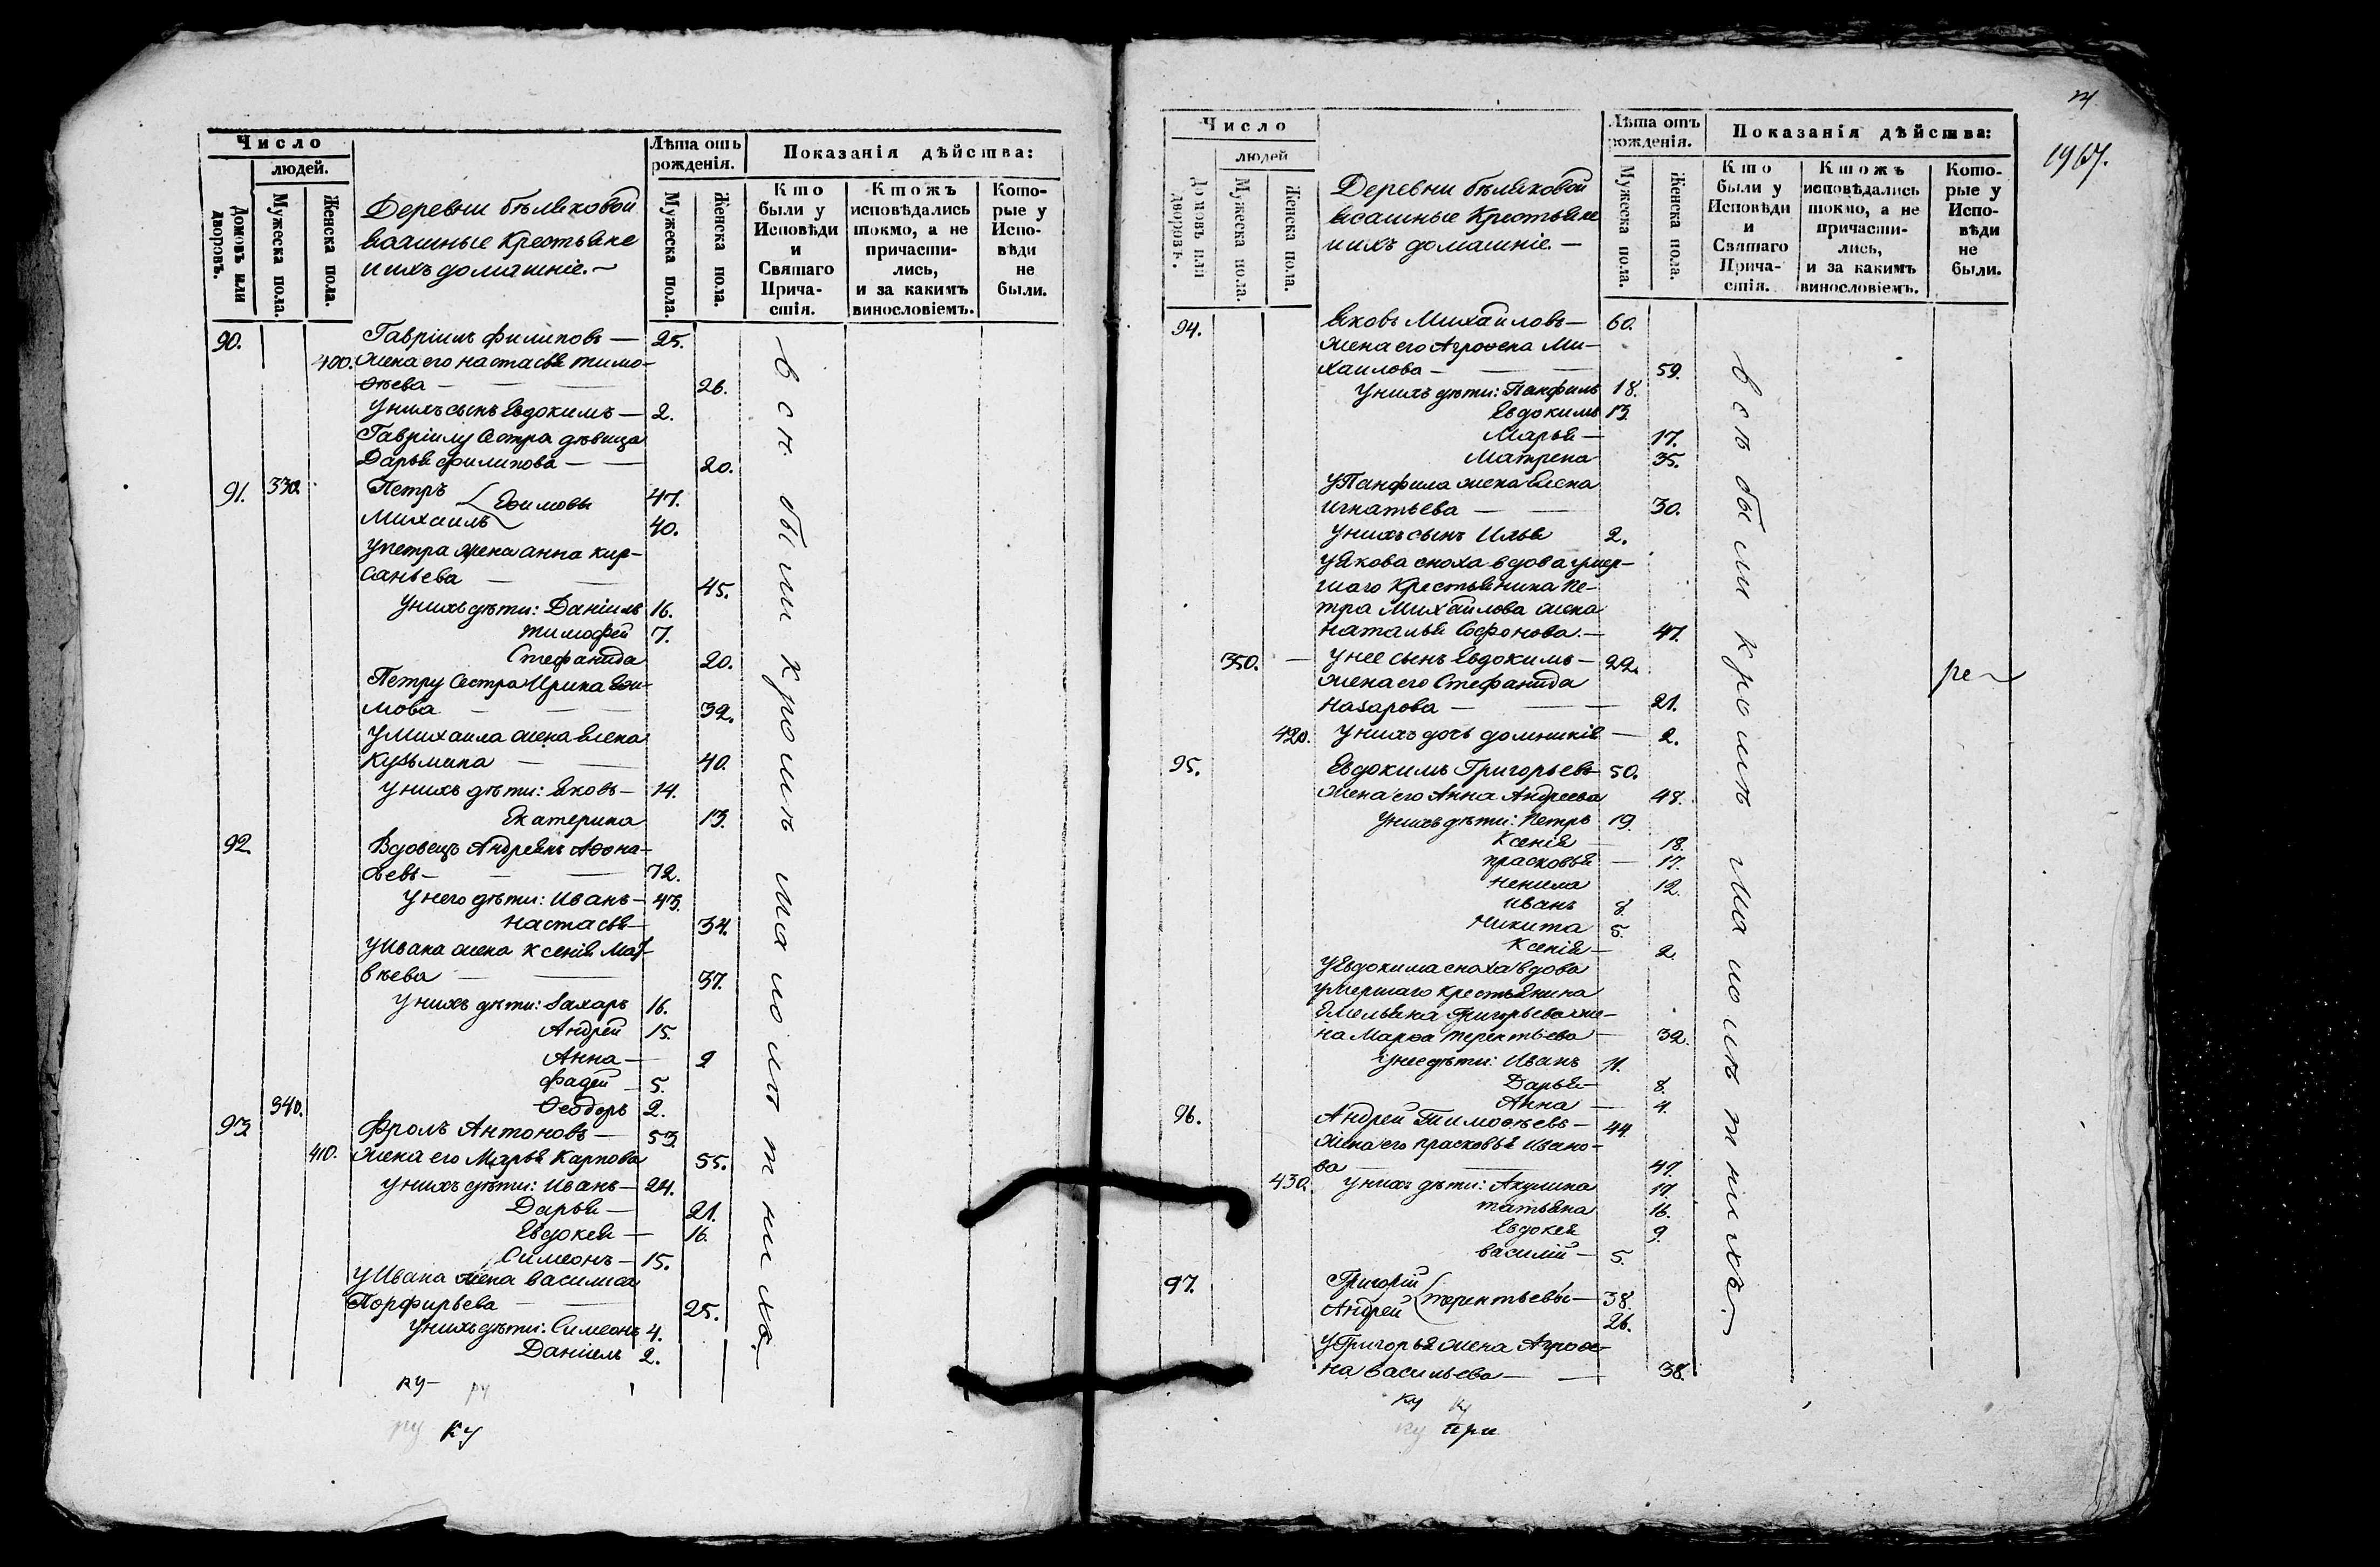 Число
людей.
Домовъ или дворовъ.
Мужеска пола.
Женска пола.
Деревни бѣляковой
ясашные Крестьяне
и ихъ домашніе. —
Лѣта отъ
рожденія.
Мужеска пола.
Женска пола.
Показанія дѣйства:
Кто
были у
Исповѣди
и
Святаго
Прича-
стія.
Ктожъ
исповѣдались
токмо, а не
причасти-
лись,
и за какимъ
винословіемъ.
Кото-
рые у
Испо-
вѣди
не
были.
90. Гавріилъ филиповъ — 25.
400. жена его настасья тимо-
ѳѣева — 26.
У нихъ сынъ Евдокимъ — 2.
Гавріилу Сестра дѣвица
Дарья филипова — 20.
91. 330. Петръ 47.
Ефимовы
Михаилъ 40.
У петра жена анна кир-
саньева — 45.
У нихъ дѣти: Даніилъ 16.
тимофей 7.
Стефанида 20.
Петру Сестра Ирина Ефи-
мова — 32.
У Михаила жена Елена
Кузьмина — 40.
У нихъ дѣти: Яковъ — 14.
Екатерина 13.
92. Вдовецъ Андреянъ Аѳона-
сьевъ — 72.
У него дѣти: Иванъ — 43.
настасья — 34.
У Ивана жена Ксенія Мат-
вѣева — 37.
У нихъ дѣти: Захаръ 16.
Андрей 15.
Анна — 9
фадей — 5.
340. Ѳеодоръ 2.
93. Фролъ Антоновъ — 53.
410. жена его Марья Карпова 55.
У нихъ дѣти: Иванъ — 24.
Дарья — 21.
Евдокея — 16.
Симеонъ — 15.
У Ивана жена василиса
Порфирьева — 25.
У нихъ дѣти: Симеонъ 4.
Даніилъ 2.
всѣ были кромѣ малолѣтнихъ.
ку — ру
ру ку
1967.
Число
людей
Домовъ или дворовъ.
Мужеска пола.
Женска пола.
Деревни бѣляковой
ясашные Крестьяне
и ихъ домашніе. —
Лѣта отъ
рожденія.
Мужеска пола.
Женска пола.
Показанія дѣйства:
Кто
были у
Исповѣди
и
Святаго
Прича-
стія.
Ктожъ
исповѣдались
токмо, а не
причасти-
лись,
и за какимъ
винословіемъ.
Кото-
рые у
Испо-
вѣди
не
были.
94. Яковъ Михайловъ — 60.
жена его Агрофена Ми-
хаилова — 59.
У нихъ дѣти: Панфилъ 18.
Евдокимъ 13.
Марья — 17.
Матрена 35.
У Панфила жена Елена
игнатьева — 30.
У нихъ сынъ Илья 2.
У Якова сноха вдова умер-
шаго Крестьянина Пе-
тра Михайлова жена
наталья Софонова. — 47.
350. — У нее сынъ Евдокимъ — 22.
жена его Стефанида
Назарова — 21.
420. У нихъ дочь домникія — 2.
95. Евдокимъ Григорьевъ 50.
жена его Анна Андреева 48.
У нихъ дѣти: Петръ 19.
Ксенія — 18.
прасковья — 17.
Ненила 12.
иванъ 8.
Никита 5.
Ксенія — 2.
У Евдокима сноха вдова
умершаго крестьянина
Емельяна Григорьева же-
на Марѳа терентьева — 32.
У нее дѣти: Иванъ 11.
Дарья — 8.
Анна — 4.
96. Андрей Тимоѳѣевъ — 44.
жена его прасковья Ивано-
ва — 47.
430. У нихъ дѣти: Акулина 17.
татьяна 16.
Евдокея 9.
василій — 5.
97. Григорій 38.
терентьевы —
Андрей 26.
У Григорья жена Агрофе-
на васильева — 38.
всѣ были кромѣ малолѣтнихъ.
ре
ку ку
ку при